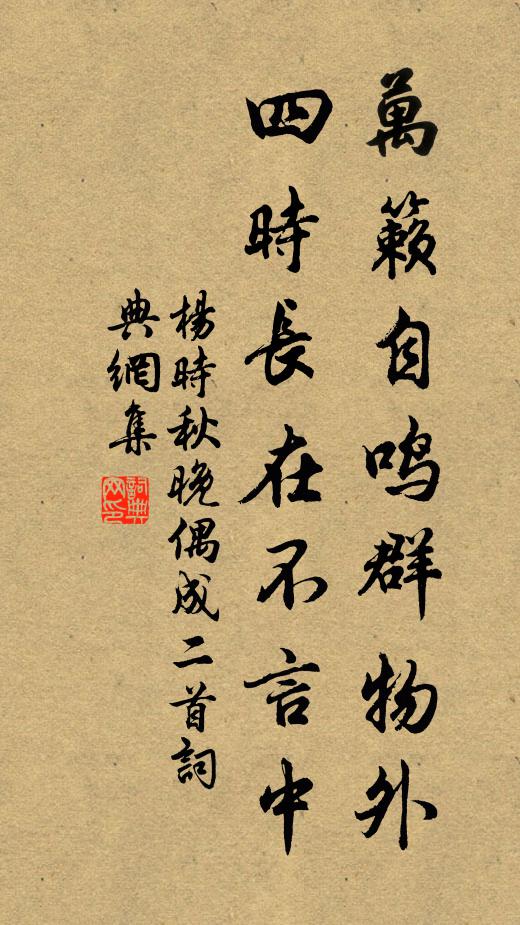 萬籟自鸣群物外
四時長在不言中
楊時秋晚偶成二首詞
典網集
詞典網印